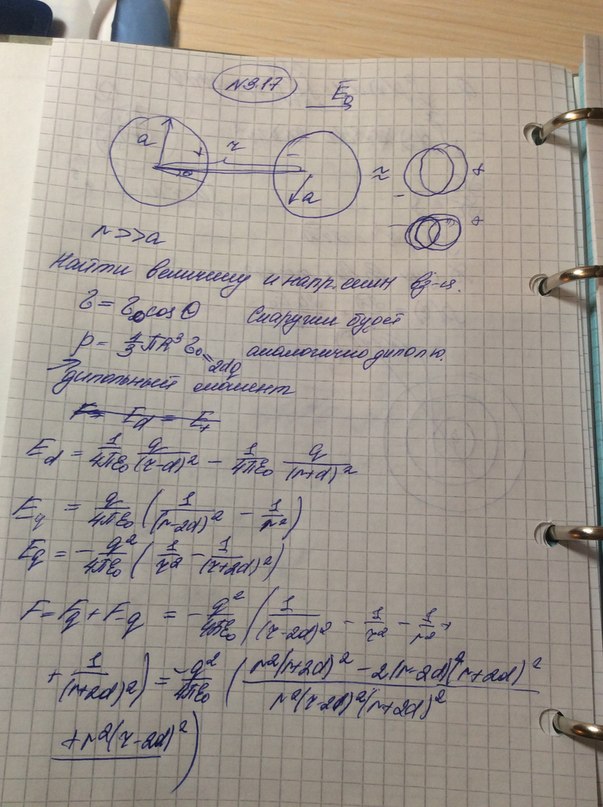 N3.17 E_q
a + r − a ≈ − +
− +
r >> a
Найти величину и напр. сил вз-я.
τ = τ₀ cos Θ Снаружи будет
p = 4/3 πR³ τ₀ = 2dq аналогично диполю.
дипольный момент
E_d = 1/4πε₀ q/(r-d)² − 1/4πε₀ q/(r+d)²
E_q = q/4πε₀ (1/(r-2d)² − 1/r²)
E_q = − q²/4πε₀ (1/r² − 1/(r+2d)²)
F = F_q + F_-q = − q²/4πε₀ (1/(r-2d)² − 1/r² − 1/r² +
+ 1/(r+2d)²) = −q²/4πε₀ (r²(r+2d)² − 2(r-2d)²(r+2d)² / r²(r-2d)²(r+2d)²
+ r²(r-2d)²)